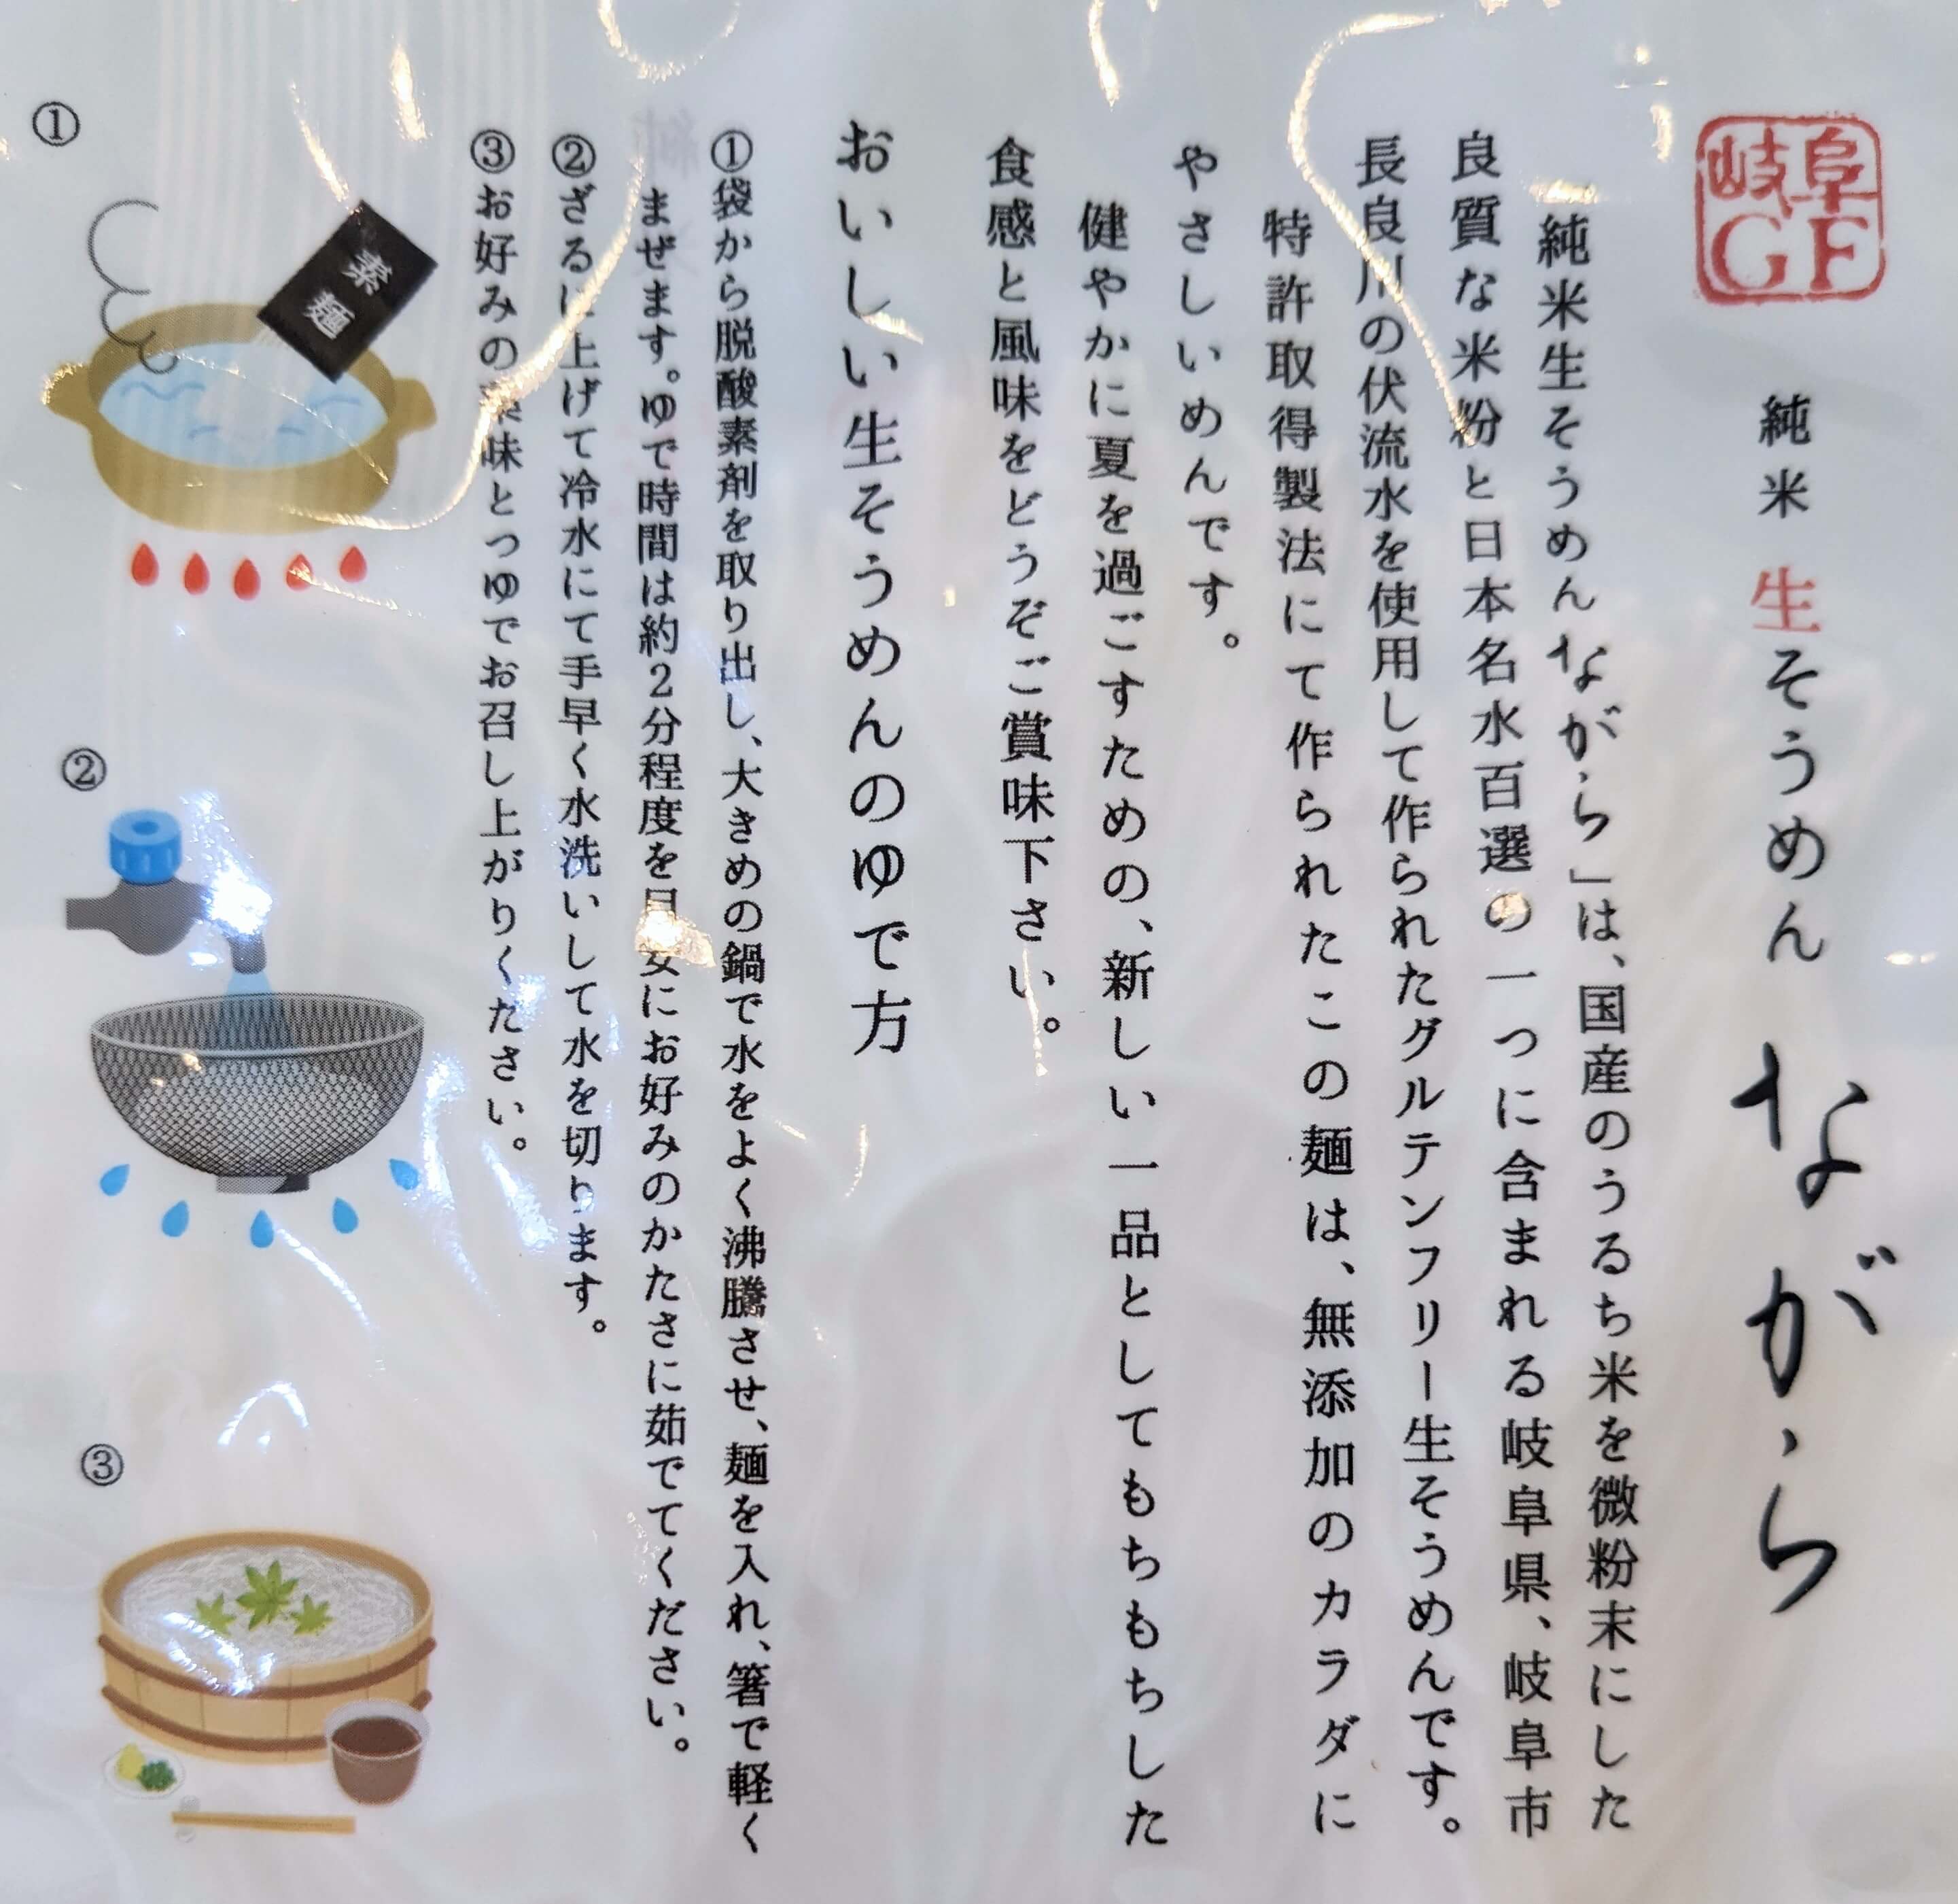 岐阜
GF
純米 生そうめん ながら
純米生そうめん ながら」は、国産のうるち米を微粉末にした
良質な米粉と日本名水百選の一つに含まれる岐阜県、岐阜市
長良川の伏流水を使用して作られたグルテンフリー生そうめんです。
特許取得製法にて作られたこの麺は、無添加のカラダに
やさしいめんです。
健やかに夏を過ごすための、新しい一品としてもちもちした
食感と風味をどうぞご賞味下さい。
おいしい生そうめんのゆで方
①袋から脱酸素剤を取り出し、大きめの鍋で水をよく沸騰させ、麺を入れ、箸で軽く
まぜます。ゆで時間は約2分程度を目安にお好みのかたさに茹でてください。
②ざるに上げて冷水にて手早く水洗いして水を切ります。
③お好みの薬味とつゆでお召し上がりください。
①
素麺
②
③